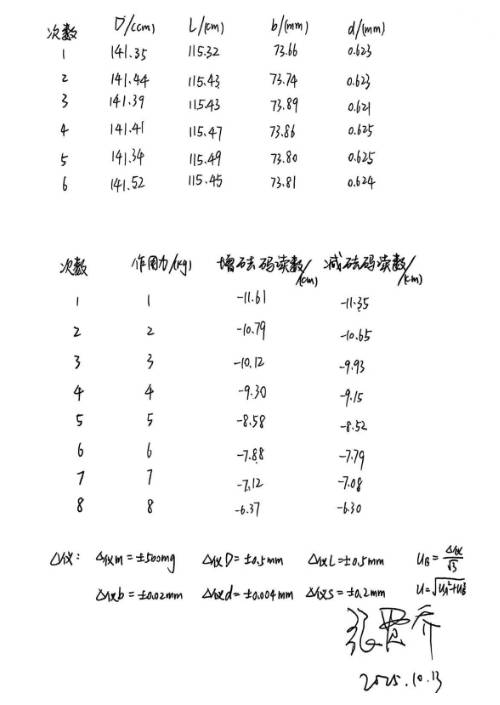 次数 D/(cm) L/(cm) b/(mm) d/(mm)
1 141.35 115.32 73.66 0.623
2 141.44 115.43 73.74 0.623
3 141.39 115.43 73.89 0.621
4 141.41 115.47 73.86 0.625
5 141.34 115.49 73.80 0.625
6 141.52 115.45 73.81 0.624
次数 作用力/(kg) 增砝码读数/(cm) 减砝码读数/(cm)
1 1 -11.61 -11.35
2 2 -10.79 -10.65
3 3 -10.12 -9.93
4 4 -9.30 -9.15
5 5 -8.58 -8.52
6 6 -7.88 -7.79
7 7 -7.12 -7.08
8 8 -6.37 -6.30
Δ仪: Δ仪m = ±500mg Δ仪D = ±0.5mm Δ仪L = ±0.5mm U_B = Δ仪/√3
Δ仪b = ±0.02mm Δ仪d = ±0.004mm Δ仪s = ±0.2mm U = √(U_A²+U_B²)
2025.10.13